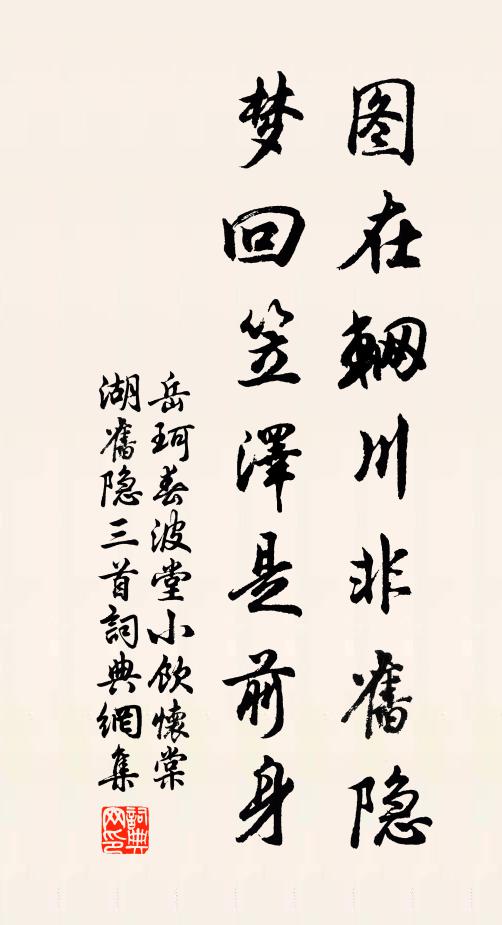 图在辋川非舊隐
梦回笠澤是前身
岳珂春波堂小飲懷棠
湖舊隐三首詞典網集
詞典
网印